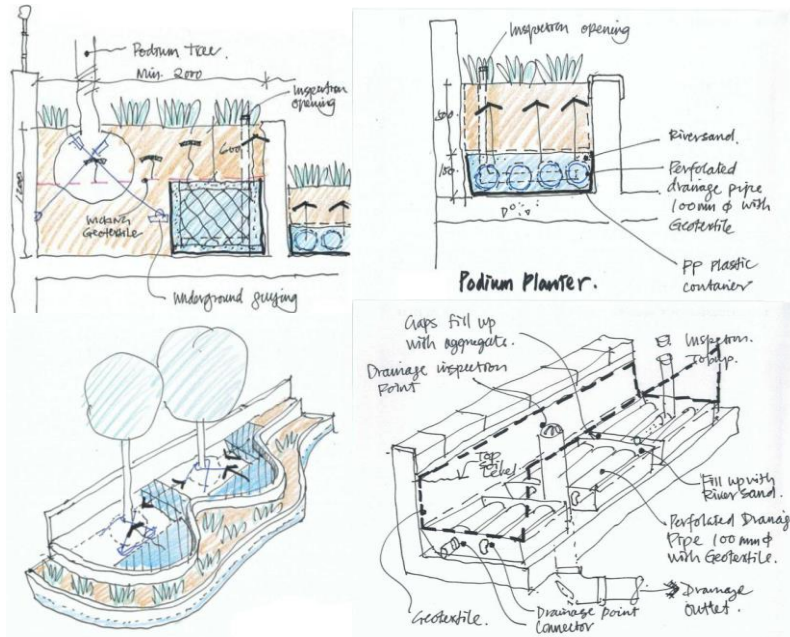 Podium Tree.
Min. 2000
Inspection
opening
600
1200
Wicking
Geotextile
Underground guying
Inspection opening
Riversand.
Perfolated
drainage pipe
100mm φ with
Geotextile
PP Plastic
container
Podium Planter.
Gaps fill up
with aggregate.
Drainage inspection
Point
Inspection
Top
Soil
Level
Fill up with
River Sand.
Perforated Drainage
Pipe 100mm φ
with Geotextile.
Drainage
outlet.
Drainage Point
Connector
Geotextile.